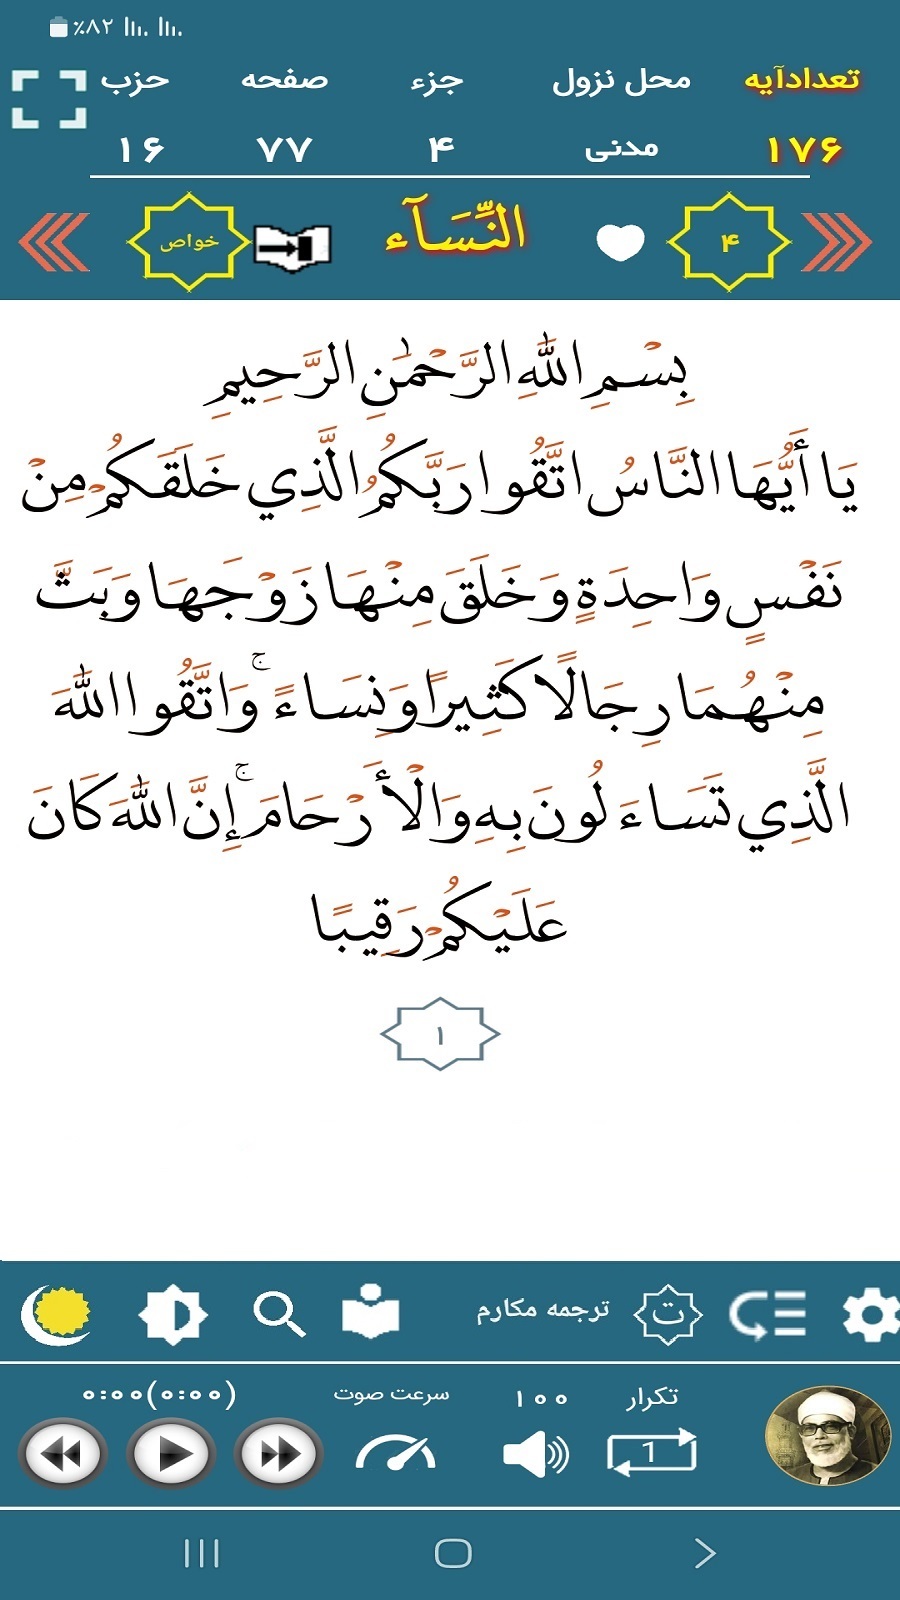 ٪۸۲
تعدادآیه محل نزول جزء صفحه حزب
۱۷۶ مدنی ۴ ۷۷ ۱۶
۴ النِّسَآء خواص
بِسْمِ اللَّهِ الرَّحْمَٰنِ الرَّحِيمِ
يَا أَيُّهَا النَّاسُ اتَّقُوا رَبَّكُمُ الَّذِي خَلَقَكُمْ مِنْ
نَفْسٍ وَاحِدَةٍ وَخَلَقَ مِنْهَا زَوْجَهَا وَبَثَّ
مِنْهُمَا رِجَالًا كَثِيرًا وَنِسَاءً ۚ وَاتَّقُوا اللَّهَ
الَّذِي تَسَاءَلُونَ بِهِ وَالْأَرْحَامَ ۚ إِنَّ اللَّهَ كَانَ
عَلَيْكُمْ رَقِيبًا
۱
ت ترجمه مکارم
تکرار ۱۰۰ سرعت صوت ۰:۰۰(۰:۰۰)
1